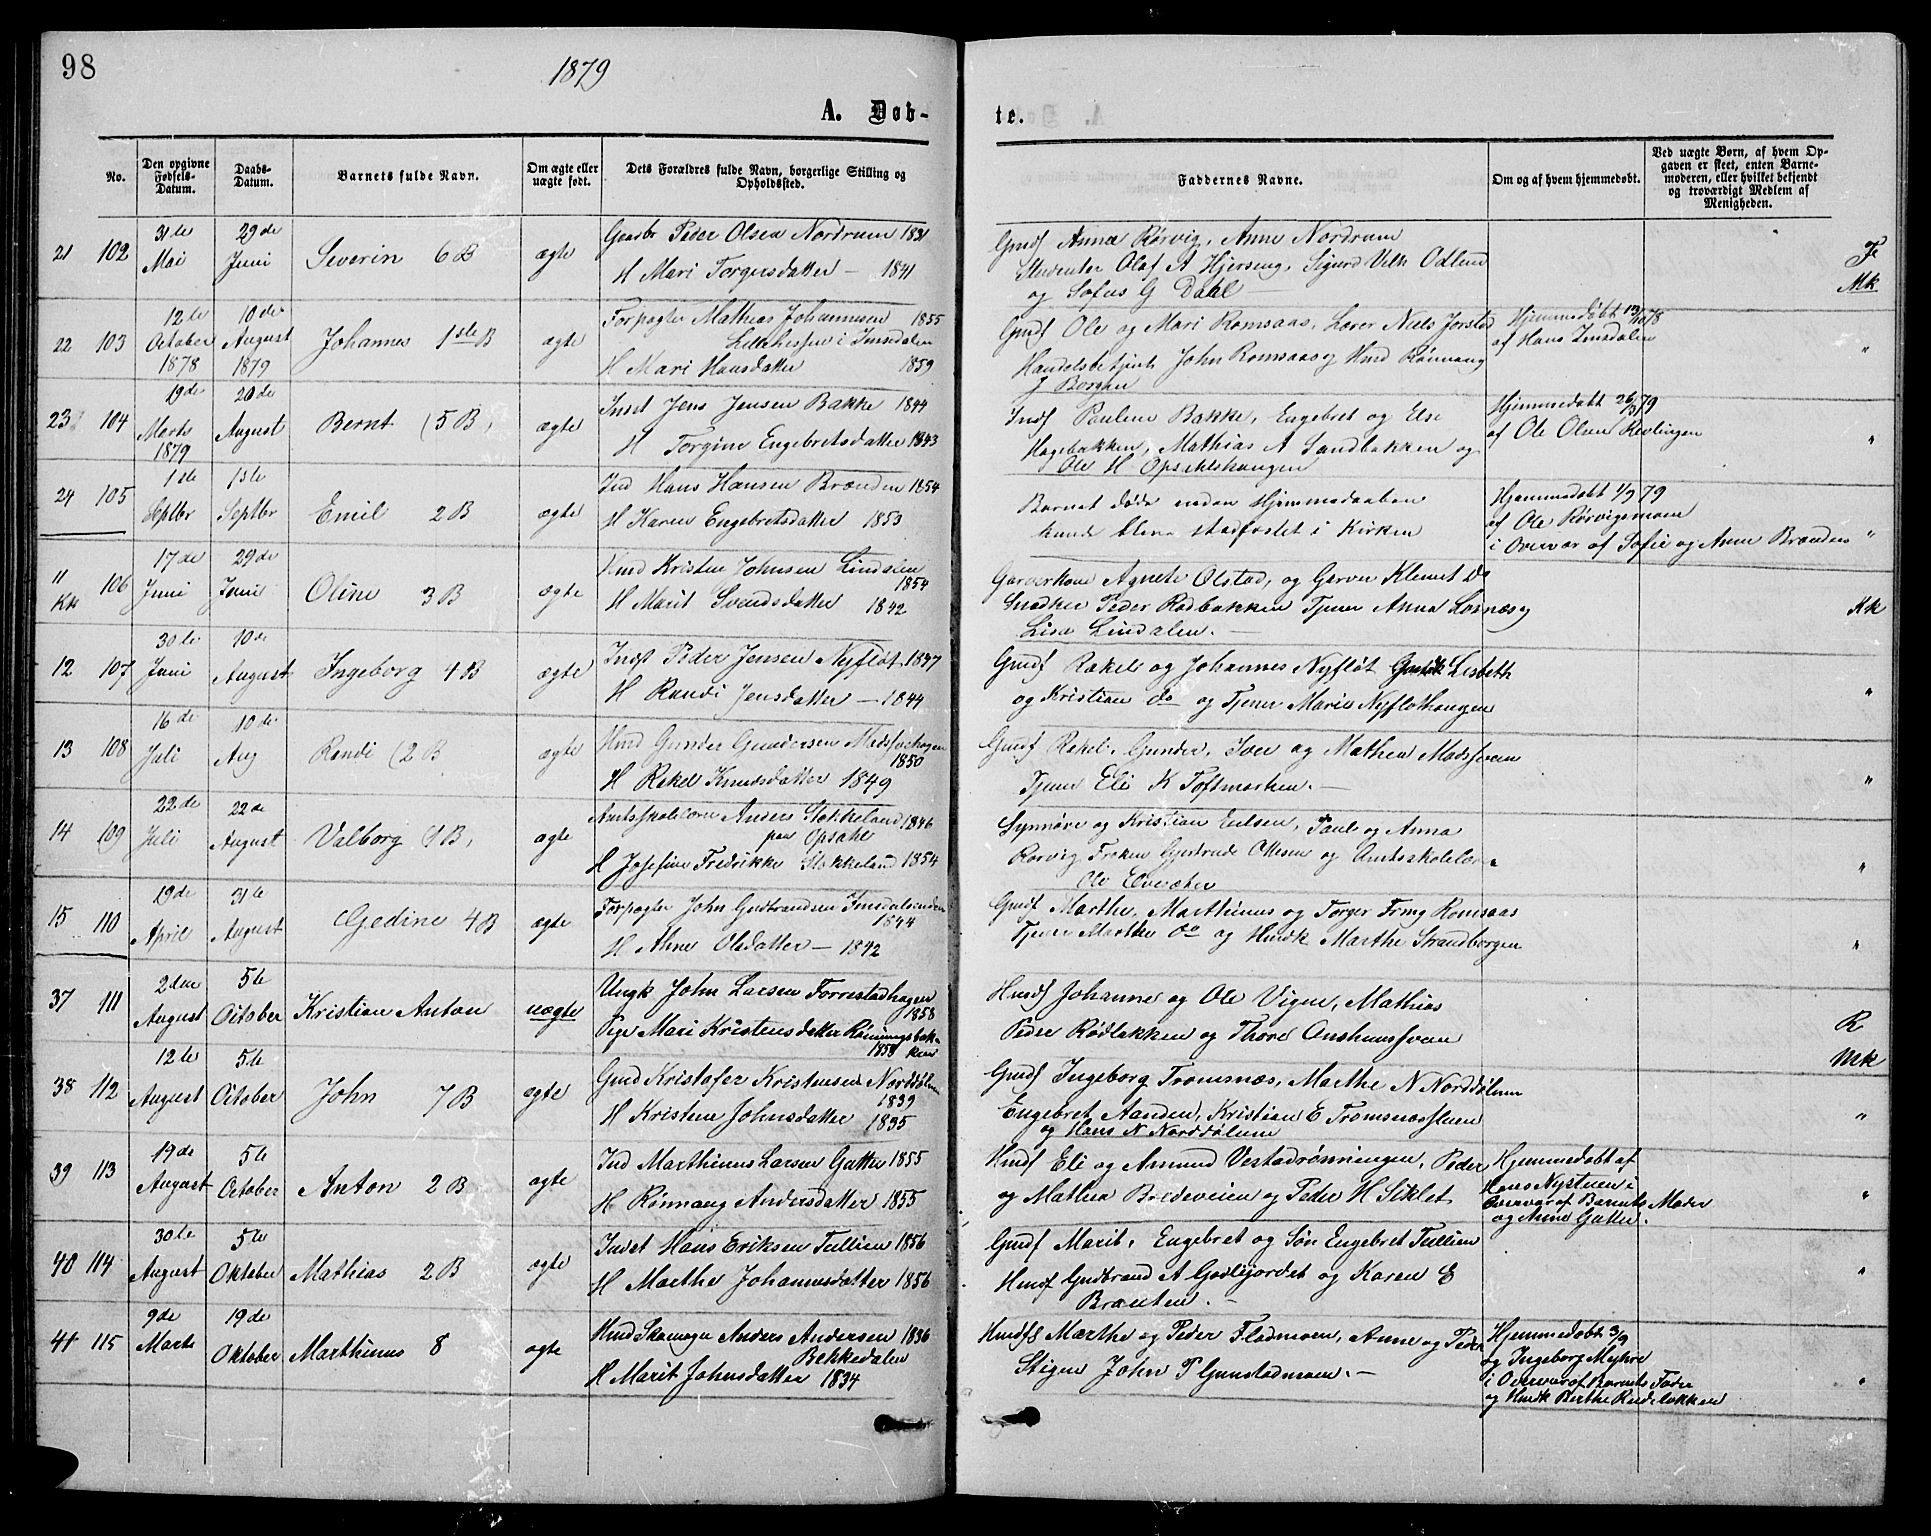 98
1879
A. Døb-
te.
No.
Den opgivne Fødsels-Datum.
Daabs-Datum.
Barnets fulde Navn.
Om ægte eller uægte født.
Dets Forældres fulde Navn, borgerlige Stilling og Opholdssted.
Faddernes Navne.
Om og af hvem hjemmedøbt.
Ved uægte Børn, af hvem Op-
gaven er skeet, enten Barne-
moderen, eller hvilket bekjendt
og troværdigt Medlem af
Menigheden.
21 102 31te Mai 29de Juni Severin 6 B ægte
Gaardbr Peder Olsen Nordrum 1831
H Mari Torgersdatter — 1841
Gmdf Anne Rørvig, Anne Nordrum
Studenter Olaf A Hjerseng, Sigurd Vilh Odlund
og Sofus G Dahl
Fr
Mk
22 103 12te October 1878 10de August 1879 Johannes 1ste B ægte
Forpagter Mathias Johannesen 1855
i Imsdalen
H Mari Hansdatter 1859
Gmdf Ole og Mari Romsaas, Lærer Niels Jorstad
Handelsbetjent John Romsaas og Hmd Rønnaug
J Berghe
Hjemmedøbt 13/10 78
af Hans Imsdalen
"
23 104 19de Marts 1879 20de August Bernt (5 B, ægte
Indst Jens Jensen Bakke 1844
H Torgine Engebretsdatter 1843
Indf Pauline Bakke, Engebret og Else
Hagebakken, Mathias A Sandbakken og
Ole H Opsahlshaugen
Hjemmedøbt 26/3 79
af Ole Olsen Kevlingen
"
24 105 1ste Septbr 1ste Septbr Emil 2 B ægte
Ind Hans Hansen Brænden 1854
H Karen Engebretsdatter 1853
Barnet døde inden Hjemmedaaben
kunde blive stadfæstet i Kirken
Hjemmedøbt 1/9 79
af Ole Rørvigsmoen
i Overvær af Sofie og Anne Brænden "
11 Kk 106 17de Juni 29de Juni Oline 3 B ægte
Hmd Kristen Johnsen Lindalen
1854
H Marit Svendsdatter 1842
Garverkone Agnete Olstad, og Garver Klemet Do
Snedker Peder Rødbakken Tjener Anne Losnæs og
Lisa Lindalen. —
Kk
12 107 30te Juni 10de August Ingeborg 4 B ægte
Indst Peder Jensen Nyfløt 1847
H Randi Jensdatter — 1844
Gmdf Rakel og Johannes Nyfløt Gmdk Lisbeth
og Kristian do og Tjener Marie Nyfløthaugen
"
13 108 16de Juli 10de Aug Randi (2 B ægte
Hmd Gunder Gundersen Madsvehagen
1850
H Rakel Knudsdatter 1849
Gmdf Rakel, Gunder, Iver og Mathea Madssveen
Tjener Eli K Toftmarken. —
"
14 109 22de Juli 22de August Valborg (1 B, ægte
Amtsskolelærer Anders Stokkeland 1846
paa Opsahl
H Josefine Fredrikke Stokkeland 1854
Synnøve og Kristian Eulsen, Paul og Anna
Rørvig, Frøken Gjertrude Ottesen og Amtsskolelærer
Ole Elveæter
"
15 110 19de April 31te August Gedine 4 B ægte
Forpagter John Gudbrandsen Imsdalen
1844
H Ahne Olsdatter — 1842
Gmdf Marthe, Marthinus og Torger Romsaas
Tjener Marthea do og Hmdk Marthe Strandborgen
"
37 111 2den August 5te October Kristian Anton uægte
Ungk John Larsen Forrestadhagen
1858
Pige Mari Kristensdatter Rønningsbak-
1858 ken
Hmdf Johanne og Ole Vigen, Mathias
Peder Rødløkken og Thore Aushaugsveen
R
Mk
38 112 12te August 5te October John 7 B ægte
Gmd Kristofer Kristensen Norddølum
1839
H Kristine Johnsdatter 1835
Gmdf Ingeborg Tromsnæs, Marthe N Norddølum
Engebret Aanden, Kristian E Tromsnæsstuen
og Hans N Norddølum
"
39 113 19de August 5te October Anton 2 B ægte
Ind Marthinus Larsen Gutter 1855
H Rønnaug Andersdatter 1855
Hmdf Eli og Amund Vestadrønningen, Peder
og Mathea Bredeveien og Peder H Siklet
Hjemmedøbt af
Hans Nystuen i
Overvær af Barnets Moder
og Anne Gutter.
"
40 114 30te August 5te Oktober Mathias 2 B ægte
Indst Hans Eriksen Tullien 1856
H Marthe Johannesdatter 1856
Gmdf Marit, Engebret og Søn Engebret Tullien
Hmdf Gudbrand A Godlijordet og Karen E
Bræuten. —
"
41 115 9de Marts 19de Oktober Marthinus 8 ægte
Hmd Skomager Anders Andersen 1836
Bekkedalen
H Marit Johnsdatter 1834
Hmdfs Marthe og Peder Flodmoen, Anne og Peder
Stigen John P Gunstadmoen. —
Hjemmedøbt 3/9
og Ingeborg Myhre
i Overvær af Barnets Fader
og Hmdk Berthe Rudeløkken
"